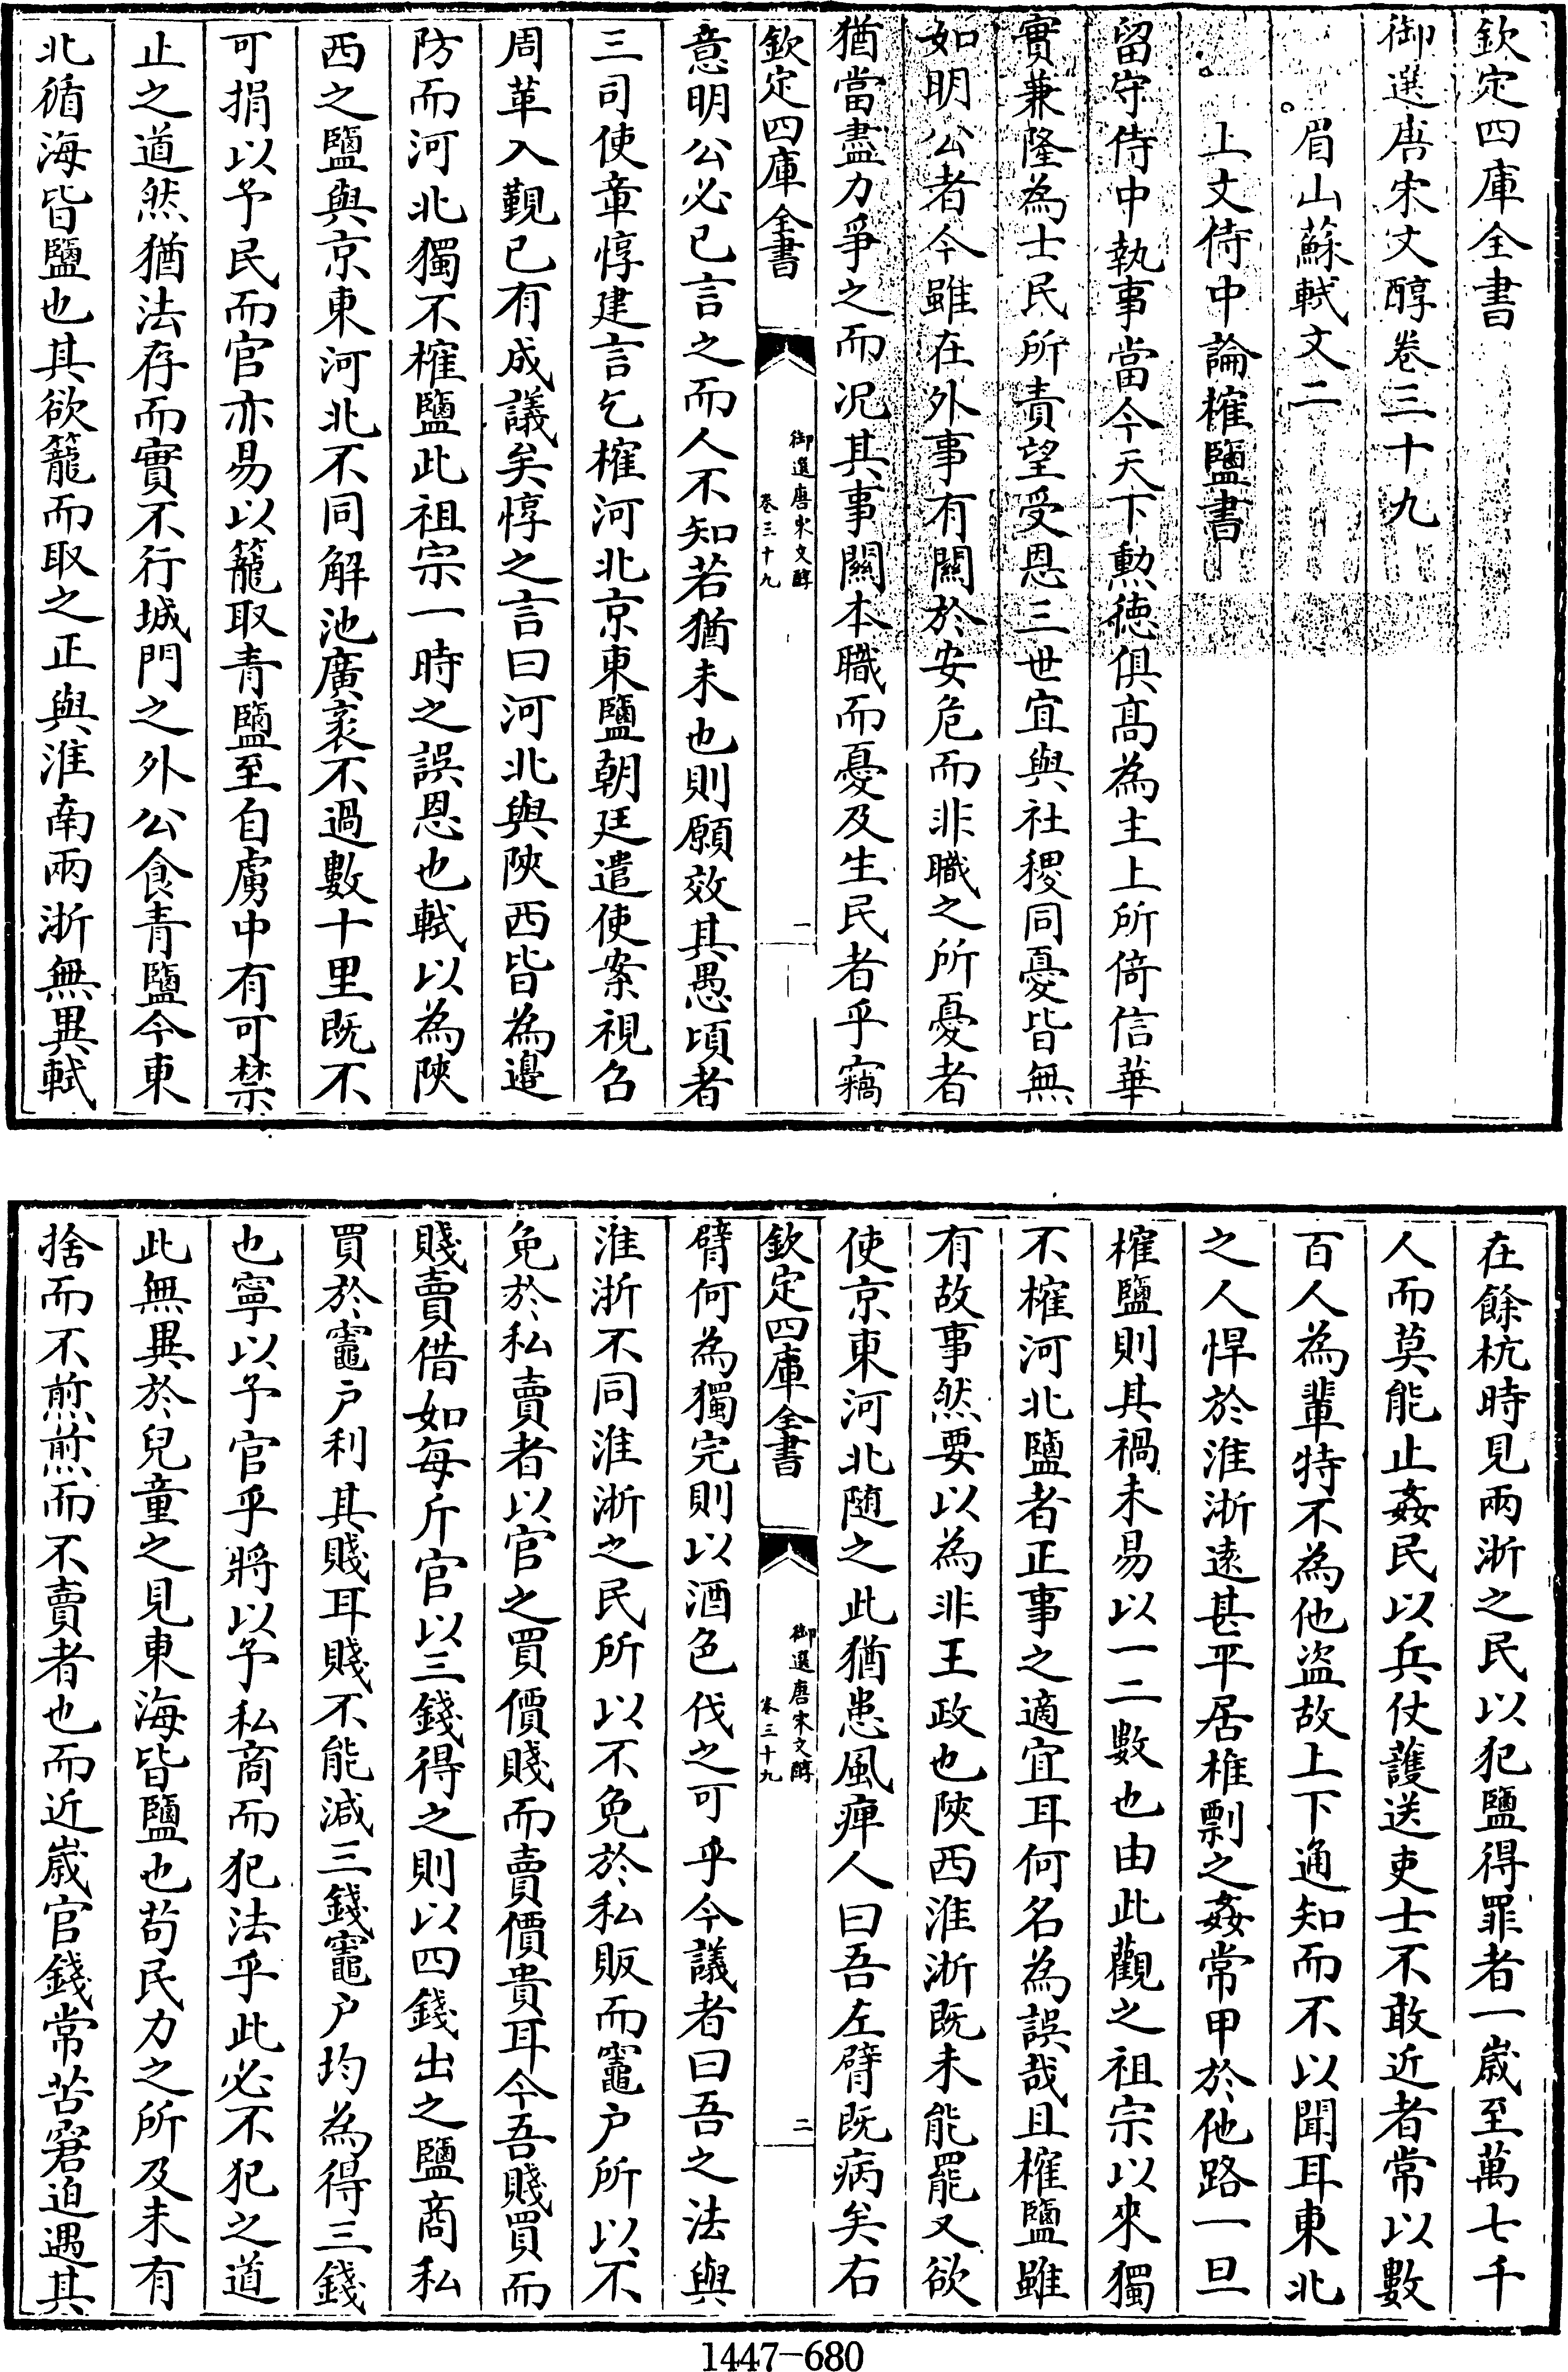 欽定四庫全書
御選唐宋文醇卷三十九
眉山蘇軾文二
上文侍中論榷鹽書
留守侍中執事當今天下勲徳俱髙為主上所倚信華
實兼隆為士民所責望受恩三世宜與社稷同憂皆無
如明公者今雖在外事有闗於安危而非職之所憂者
猶當盡力爭之而況其事闗本職而憂及生民者乎竊
欽定四庫全書
御選唐宋文醇
卷三十九
一
意明公必已言之而人不知若猶未也則願效其愚頃者
三司使章惇建言乞榷河北京東鹽朝廷遣使案視召
周革入覲已有成議矣惇之言曰河北與陜西皆為邉
防而河北獨不榷鹽此祖宗一時之誤恩也軾以為陜
西之鹽與京東河北不同解池廣袤不過數十里既不
可捐以予民而官亦易以籠取青鹽至自虜中有可禁
止之道然猶法存而實不行城門之外公食青鹽今東
北循海皆鹽也其欲籠而取之正與淮南兩浙無異軾
在餘杭時見兩浙之民以犯鹽得罪者一嵗至萬七千
人而莫能止姦民以兵仗護送吏士不敢近者常以數
百人為輩特不為他盜故上下通知而不以聞耳東北
之人悍於淮浙逺甚平居椎剽之姦常甲於他路一旦
榷鹽則其禍未易以一二數也由此觀之祖宗以來獨
不榷河北鹽者正事之適宜耳何名為誤哉且榷鹽雖
有故事然要以為非王政也陜西淮浙既未能罷又欲
使京東河北随之此猶患風痺人曰吾左臂既病矣右
欽定四庫全書
御選唐宋文醇
卷三十九
二
臂何為獨完則以酒色伐之可乎今議者曰吾之法與
淮浙不同淮浙之民所以不免於私販而竈户所以不
免於私賣者以官之買價賤而賣價貴耳今吾賤買而
賤賣借如每斤官以三錢得之則以四錢出之鹽商私
買於竈户利其賤耳賤不能減三錢竈户均為得三錢
也寧以予官乎將以予私商而犯法乎此必不犯之道
此無異於兒童之見東海皆鹽也茍民力之所及未有
捨而不煎煎而不賣者也而近嵗官錢常苦窘迫遇其
1447-680